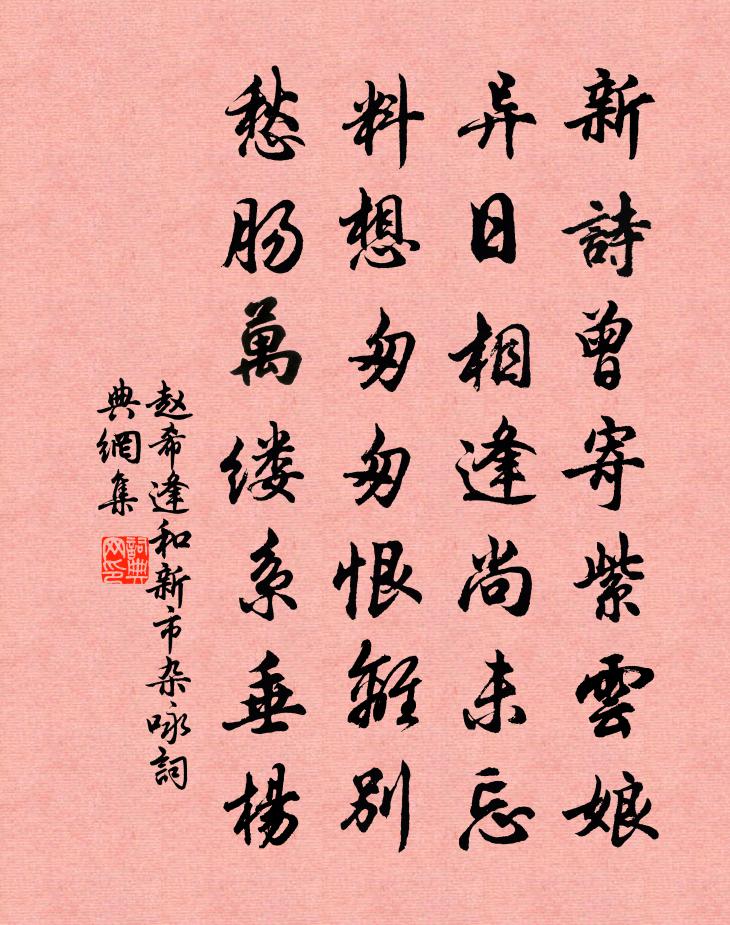 新詩曾寄紫雲娘
异日相逢尚未忘
料想匆匆恨離别
愁肠萬缕系垂楊
赵希逢和新市杂咏詞
典網集
詞典網印